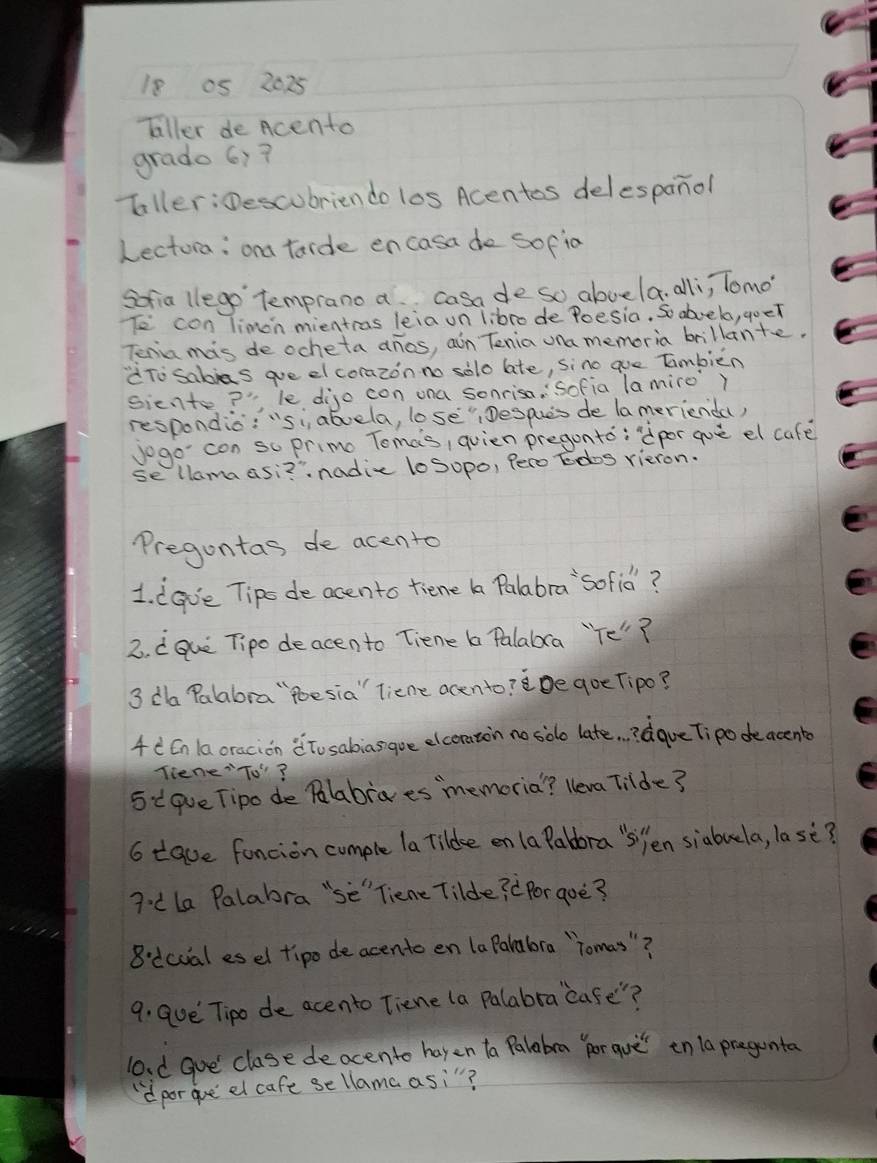 18 05 2025
Taller de Acento
grado 6y7
Taller: Descubriendo los Acentos delespañol
Lectura: una tarde en casa de Sofia
Sofía llegó Temprano a casa de su abuela. allí, Tomó
Té con limón mientras leia un libro de Poesía. Su abuela, que
Tenia más de ocheta años, aún Tenia una memoria brillante.
"¿Tú sabias que el corazón no sólo late, sino que También
siente?", le dijo con una sonrisa. Sofia la miró y
respondió: "sí, abuela, lo sé", Después de la merienda,
jugó con su primo Tomás, quien preguntó: "¿por qué el café
se llama asi?". nadie losupo, Pero Todos rieron.
Preguntas de acento
1. ¿que Tipo de acento tiene la Palabra "Sofía"?
2. ¿Qué Tipo de acento Tiene la Palabra "Té"?
3 ¿la Palabra "Poesia" Tiene acento? ¿De queTipo?
4 ¿En la oración "¿Tu sabias que elcorazón no sólo late...? ¿que Tipo de acento
Tiene "Tú"?
5. ¿que Tipo de Palabra es "memoria"? lleva Tilde?
6 ¿que función cumple la Tilde en la Palabra "sí", en si abuela, la sé?
7. ¿La Palabra "sé" Tiene Tilde? ¿Por qué?
8. ¿cuál es el tipo de acento en la Palabra "Tomas"?
9. Qué Tipo de acento Tiene la palabra "café"?
10. ¿Qué clase de acento hay en la Palabra "por qué" en la pregunta
"¿por qué el cafe se llama asi"?